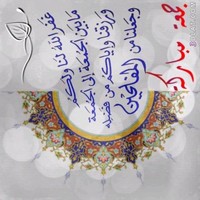 غفر الله لنا ولكم
ما بين الجمعة إلى الجمعة
ورزقنا وإياكم من فضله
وجعلنا من المفلحين
جمعة مباركة